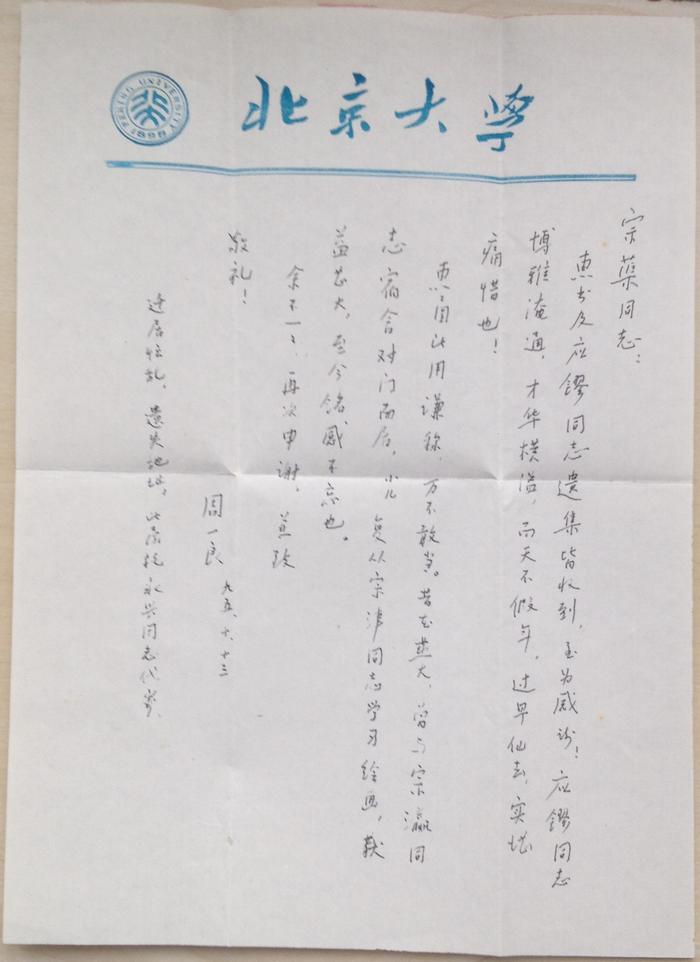 北京大学
PEKING UNIVERSITY
1898
宗蕖同志：
惠书及应镠同志遗集皆收到，至为感谢！应镠同志
博雅淹通，才华横溢，而天不假年，过早仙去，实堪
痛惜也！
惠笺自此用谦称，万不敢当。昔在燕大，曾与宗瀛同
志宿舍对门而居，小儿复从宗津同志学习绘画，获
益甚大，至今铭感不忘也。
余不一一，再次申谢，并致
敬礼！
周一良
九五、十、十三
迁居忙乱，遗失地址，此函托永兴同志代寄。